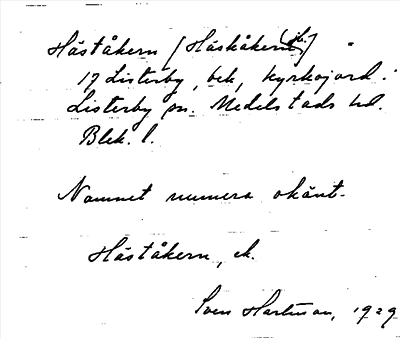 Håståkern [Håskåkern]
17 Listerby, bek, kyrkojord.
Listerby sn. Medelstads hd.
Blek. l.
Namnet numera okänt.
Håståkern, ek.
Sven Hartman, 1929